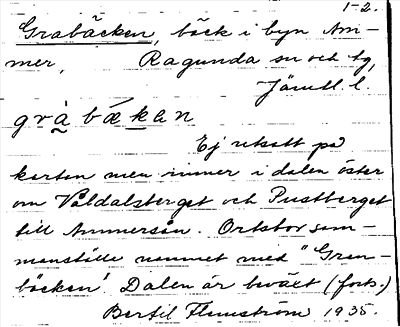 1-2.
Grabäcken, bäck i byn Am-
mer, Ragunda sn och tg,
Jämtl. l.
gråbækan
Ej utsatt på
kartan men rinner i dalen öster
om Våldalsberget och Pustberget
till Ammerån. Ortsbor sam-
manställe namnet med "Gran-
bäcken". Dalen är beväxt (forts.)
Bertil Flemström 1935.